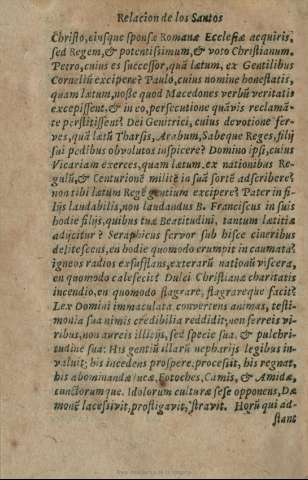 Relacion de los Santos
Christo, eiusque sponsæ Romanæ Ecclesiæ acquiris,
sed Regem, & potentissimum, & voto Christianum.
Petro, cuius es successor, quã lætum, ex Gentilibus
Corneliũ excipere? Paulo, cuius nomine honestatis,
quam lætum, nosse quod Macedones verbũ veritatis
excepissent, & in eo, persecutione quãvis reclamã-
te perstitissent? Dei Genitrici, cuius devotione fer-
ves, quã lætũ Tharsis, Arabum, Sabeque Reges, filij
sui pedibus obvolutos inspicere? Domino ipsi, cuius
Vicariam exerces, quam lætum, ex nationibus Re-
gulũ, & Centurionẽ milite in suã sortẽ adscribere?
non tibi lætum Regẽ gentium excipere? Pater in fi-
lijs laudabilis, non laudandus B. Franciscus in suis
hodie filijs, quibus tuæ Beatitudini, tantum lætitiæ
adijcitur? Seraphicus fervor sub hisce cineribus
delitescens, en hodie quomodo erumpit in caumata?
igneos radios exsufflans, exterarũ nationũ viscera,
en quomodo calefecit? Dulci Christianæ charitatis
incendio, en quomodo flagrare, flagrareque facit?
Lex Domini immaculata convertens animas, testi-
monia sua nimis credibilia reddidit; non ferreis vi-
ribus, non aureis illicijs, sed specie sua, & pulchri-
tudine sua: His gentiũ illarũ nepharijs legibus in-
valuit; his incedens prospere processit, his regnat,
his abominandæ Fotoches, Camis, & Amidæ,
cunctorumque. Idolorum culturæ sese opponens, Dæ
monẽ lacessivit, profligavit, stravit. Horũ qui ad-
stant